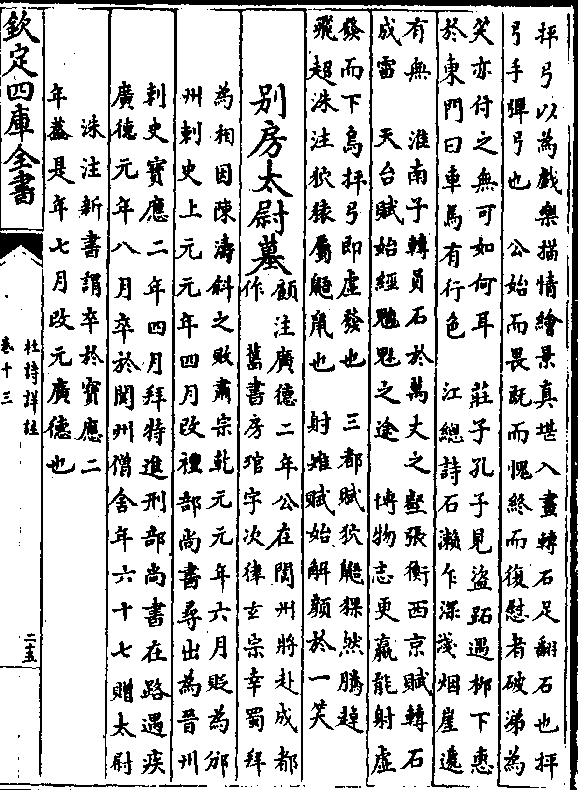 抨弓以為戲樂描情繪景真堪入畫轉石足翻石也抨
弓手彈弓也　公始而畏既而愧終而復慰者破涕為
笑亦付之無可如何耳　莊子孔子見盜跖遇柳下惠
於東門曰車馬有行色　江總詩石瀨乍深淺烟崖遞
有無　淮南子轉員石於萬丈之壑張衡西京賦轉石
成雷　天台賦始經魑魅之途　博物志更羸能射虛
發而下鳥抨弓即虛發也　三都賦狖鼯猓然騰趠
飛超洙注狖猿屬鼯鼠也　射雉賦始解顏於一笑
别房太尉墓
顧注廣德二年公在閬州將赴成都
作　舊書房琯字次律玄宗幸蜀拜
為相因陳濤斜之敗肅宗乾元元年六月貶為邠
州刺史上元元年四月改禮部尚書尋出為晉州
刺史寶應二年四月拜特進刑部尚書在路遇疾
廣德元年八月卒於閬州僧舍年六十七贈太尉
洙注新書謂卒於寶應二
年蓋是年七月改元廣德也
欽定四庫全書
杜詩詳註
卷十三
二十五